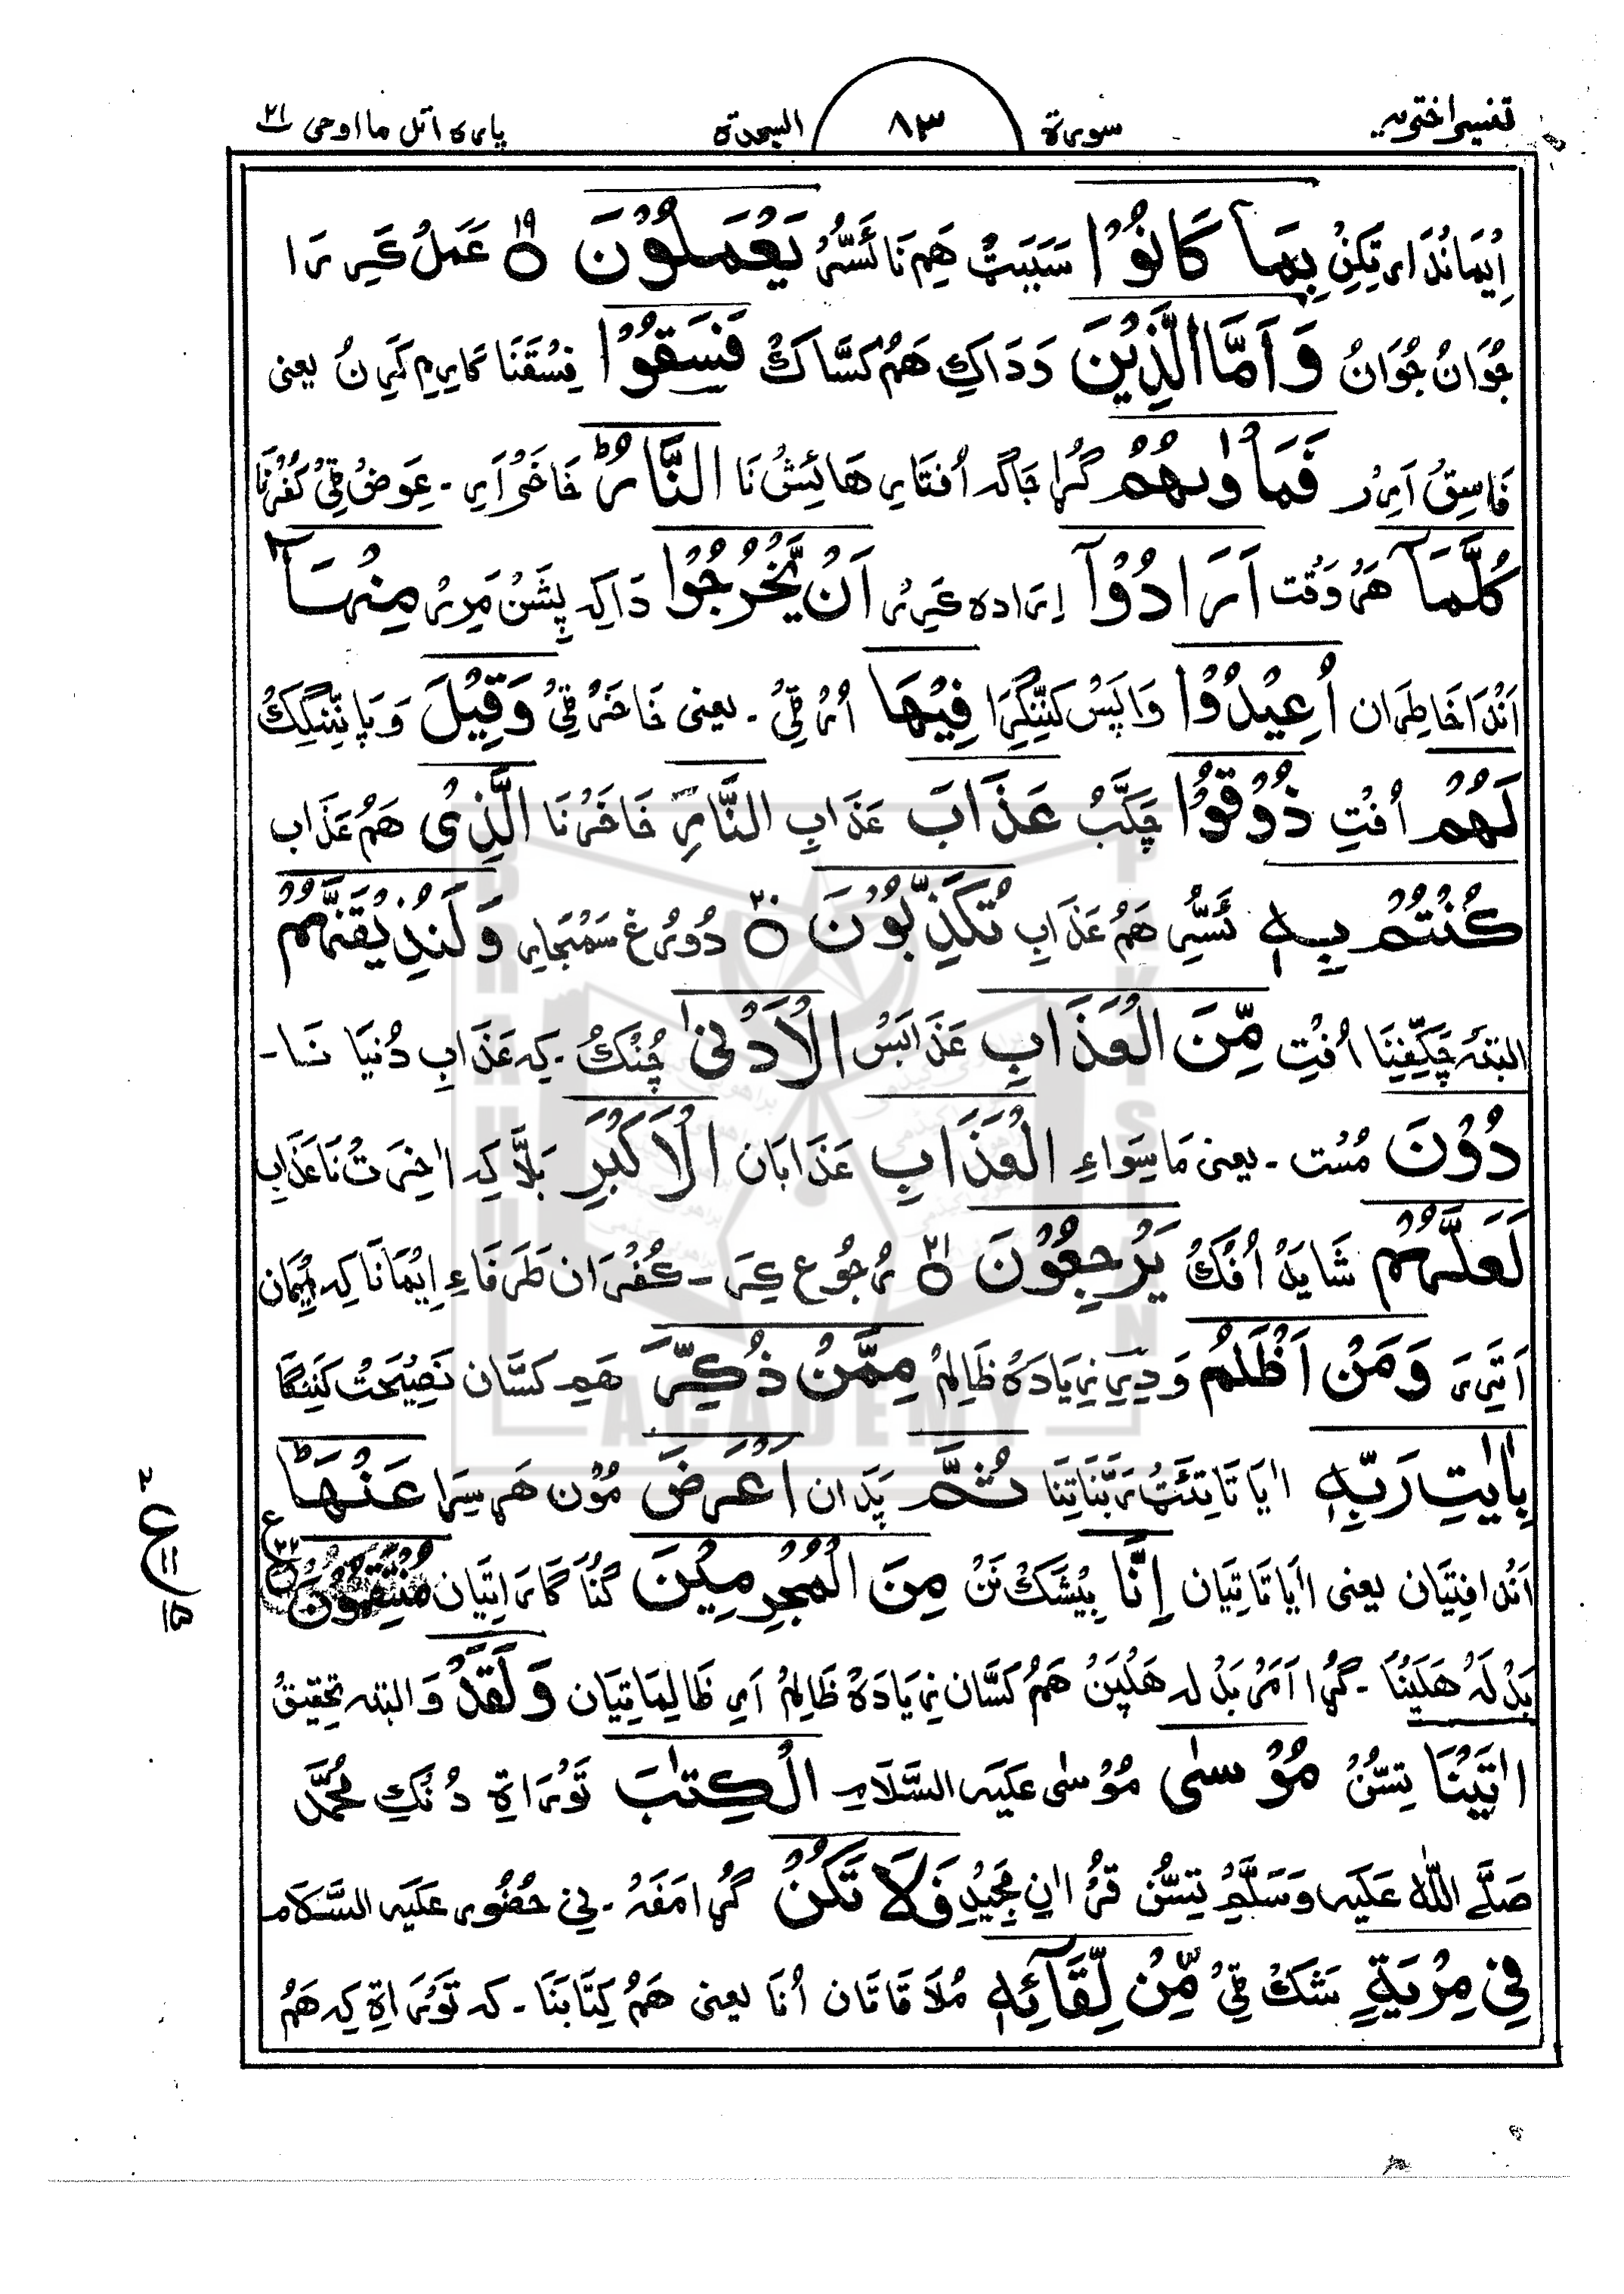 تفسیر اختریہ سورۃ ۸۳ السجدۃ پارہ اتل ما اوحی ۲۱
اِیْمَانْدَار تَکِنْ بِمَا کَانُوْا سَبَبَتْ هَمِ نَا ئَسُّرْ یَعْمَلُوْنَ ۱۹ عَمَلْ کَرِ رَا
جُوَانْ جُوَانْ وَاَمَّا الَّذِیْنَ دَدَاکِ هَمْ کَسَّاکْ فَسَقُوْا فِسْقَنَا کَارِیم کَرِنُ یعنی
فَاسِقْ اَرِرْ فَمَاْوٰىهُمُ گُڑا جَاگَہ اُفْتَا هَائِشْ نَا النَّارُ ؕ خَاخَرْ اَرِ ۔ عِوَضْ قِیْ کُفْرْنَا
کُلَّمَآ هَرْ وَقْت اَرَادُوْۤا اِرَادہ کَرِرْ اَنْ یَّخْرُجُوْا دَاکِہ پِشَنْ مَرِرْ مِنْهَاۤ
اَنْدَا خَاطِرَان اُعِیْدُوْا وَاپَسْ کَنِّنْگِرَا فِیْهَا اُرْ قِیْ ۔ یعنی خَاخَرْ قِیْ وَقِیْلَ وَ پَانِنْگِکْ
لَهُمْ اُفْتِ ذُوْقُوْا چَکَّبْ عَذَابَ عَذَابِ النَّارِ خَاخَرْنَا الَّذِیْ هَمْ عَذَاب
کُنْتُمْ بِهٖ ئَسُّرِ هَمْ عَذَابِ تُکَذِّبُوْنَ ۲۰ دُورُغ سَمْجَارِ وَلَنُذِیْقَنَّهُمْ
البتہ چَکِّفِیْنَا اُفْتِ مِّنَ الْعَذَابِ عَذَابَسْ الْاَدْنٰی چُنْکُ ۔ کہ عَذَابِ دُنیَا نَا ۔
دُوْنَ مُسْت ۔ یعنی مَا سِوَاءِ الْعَذَابِ عَذَابَان الْاَکْبَرِ بَلَّا کِہ اٰخِرَتْ نَا عَذَابِ
لَعَلَّهُمْ شَایَدْ اُفْکْ یَرْجِعُوْنَ ۲۱ رُجُوع کِرَ ۔ کُفْرَان طَرَفَاءِ اِیْمَانَا کِہ اِیْمَان
اَتِرَ وَمَنْ اَظْلَمُ وَ دِیرِ زِیَادَہْ ظَالِمْ مِمَّنْ ذُکِّرَ هَمِ کَسَّان نَصِیْحَتْ کَنِنْگَا
بِاٰیٰتِ رَبِّهٖ اٰیَاتَا تِئَتْ رَبَّنَا تِنَا ثُمَّ پَدَان اَعْرَضَ مُوْن هَرْسِرَا عَنْهَا ؕ
اَنْدَافِتِیَان یعنی اٰیَاتَاتِیَان اِنَّا بِیْشَکْ نَنْ مِنَ الْمُجْرِمِیْنَ گُنَاگَارَاتِیَان مُنْتَقِمُوْنَ ۲۲ ع
بَدْلَہْ هَلَیْنَا ۔ گُڑا اَمَرْ بَدْلہ هَلْپَنْ هَمْ کَسَّان زِیَادَہْ ظَالِمْ اَرِ ظَالِمَاتِیَان وَلَقَدْ وَ البتہ تحقیقْ
اٰتَیْنَا تِسُّنْ مُوْسٰی مُوْسٰی عَلَیہ السَّلَام الْکِتٰبَ تَوْرَاۃِ دُنْکِ مُحَمَّد
صَلَّے اللّٰهُ عَلَیہِ وَسَلَّمْ تِسُّنْ قُرْاٰنِ مَجِیْدِ فَلَا تَکُنْ گُڑا مَفَہْ ۔ نِیْ حُضُور عَلَیہ السَّلَام
فِیْ مِرْیَةٍ شَکْ قِیْ مِّنْ لِّقَآئِهٖ مُلَاقَاتَان اُنَا یعنی هَمْ کِتَابَنَا ۔ کہ تَوْرَاۃِ کِہ هَمْ